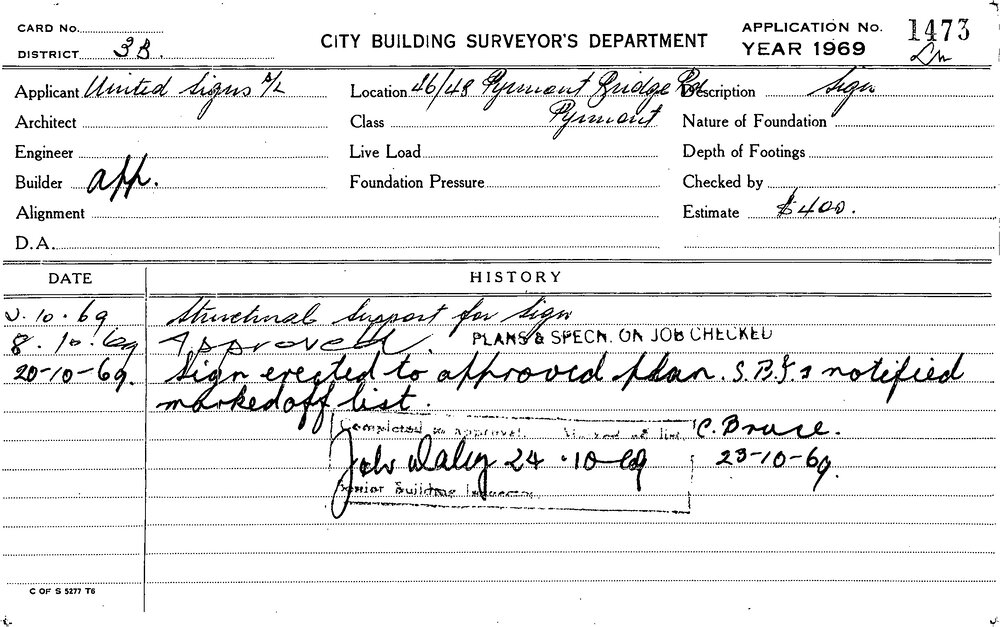 CARD No.
DISTRICT 3B.
CITY BUILDING SURVEYOR'S DEPARTMENT
APPLICATION No. 1473
YEAR 1969
Applicant United Signs P/L
Location 46/48 Pyrmont Bridge Rd
Description Sign
Architect
Class Pyrmont
Nature of Foundation
Engineer
Live Load
Depth of Footings
Builder app.
Foundation Pressure
Checked by
Alignment
Estimate $400.
D.A.
DATE HISTORY
10.69 Structural Support for Sign
8.10.69 Approved. PLANS & SPECN. ON JOB CHECKED
20-10-69. Sign erected to approved plan. notified
marked off list.
Completed to approval.
C. Bruce.
23-10-69.
Daley 24.10-69
Senior Building Inspector
C OF S 5277 T6